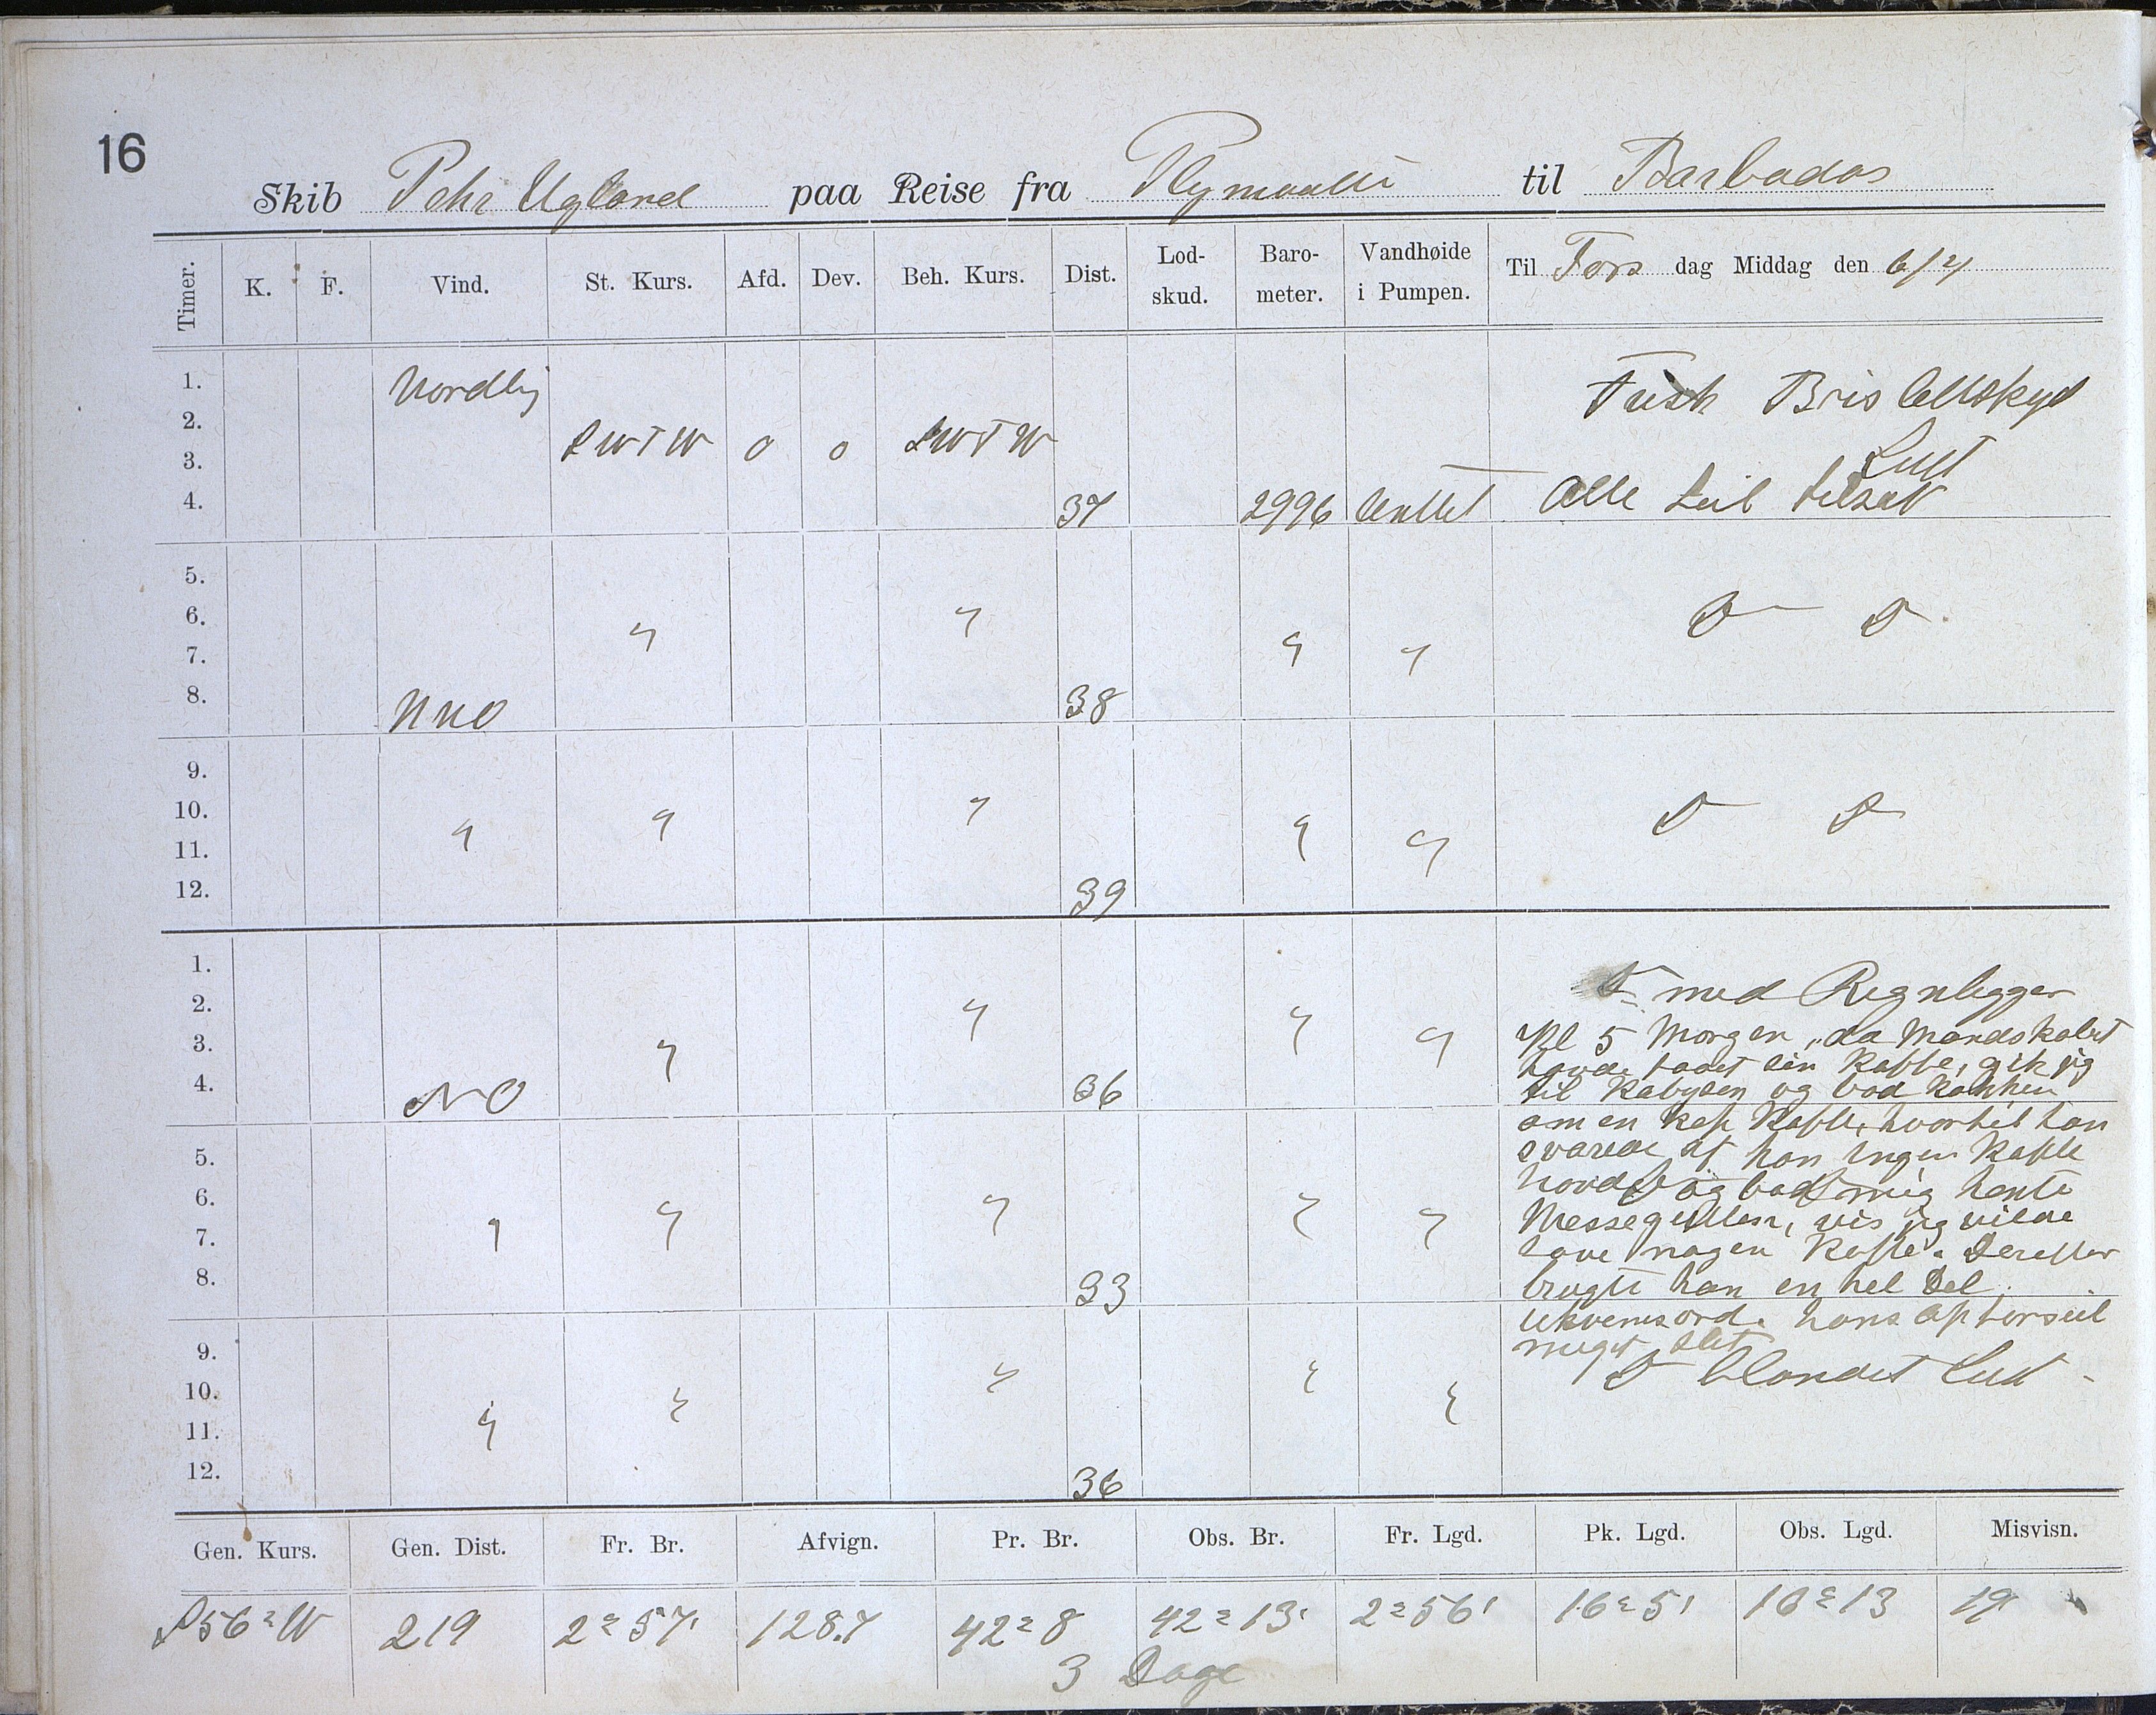 16
Skib Pehr Ugland paa Reise fra Plymouth til Barbados
Timer. K. F. Vind. St. Kurs. Afd. Dev. Beh. Kurs. Dist. Lod-skud. Baro-meter. Vandhøide i Pumpen. Til Tors dag Middag den 6/4
1. Nordlig Frisk Bris Overskyet
2. SWTW 0 0 SWTW
3. Luft
4. 37 2996 Lenset Alle Seil tilsat
5.
6. " " D D
7. " "
8. NNO 38
9.
10. " " " D D
11. " "
12. 39
1. D med Regnbyger
2. " " Kl 5 Morgen, da Mandskabet
3. " " havde tadet sin Kaffe, gik jeg
4. NO 36 til Kabysen og bad Kokken
om en Kop Kaffe, hvortil han
5. svarede at han ingen Kaffe
6. " " " havde og bad mig hente
7. " " Messegutten, vis jeg vilde
have nogen Kaffe. Derefter
8. 33 brugte han en hel Del
Ukvemsord. hans Opførseil
9. meget slet
10. " " " D blandet Luft -
11. " "
12. 36
Gen. Kurs. Gen. Dist. Fr. Br. Afvign. Pr. Br. Obs. Br. Fr. Lgd. Pk. Lgd. Obs. Lgd. Misvisn.
S56°W 219 2°57' 128.7 42°8 42°13' 2°56' 16°51 16°13 19
3 Dage